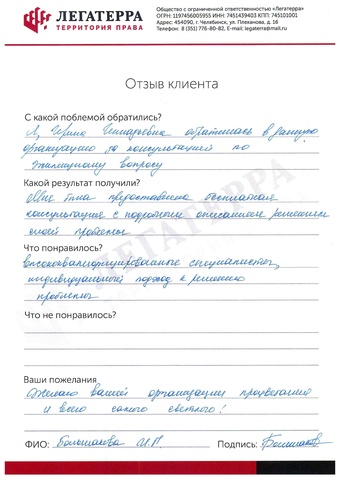 ЛЕГАТЕРРА
ТЕРРИТОРИЯ ПРАВА
Общество с ограниченной ответственностью «Легатерра»
ОГРН: 1197456005955 ИНН: 7451439403 КПП: 745101001
Адрес: 454090, г. Челябинск, ул. Плеханова, д. 16
Телефон: 8 (351) 776-80-82, E-mail: legaterra@mail.ru
Отзыв клиента
С какой поблемой обратились?
Я, Ирина обратилась в данную
организацию за консультацией по
жилищному вопросу
Какой результат получили?
Мне была предоставлена бесплатная
консультация с подробным описанием решения
моей проблемы
ЛЕГАТЕРРА
Что понравилось?
высококвалифицированные специалисты,
индивидуальный подход к решению
проблемы
Что не понравилось?
Ваши пожелания
Желаю вашей организации процветания
и всего самого светлого!
ФИО: Большакова И.
Подпись: